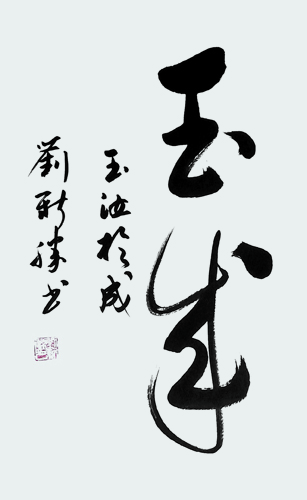 玉成
玉汝於成
劉新勝书